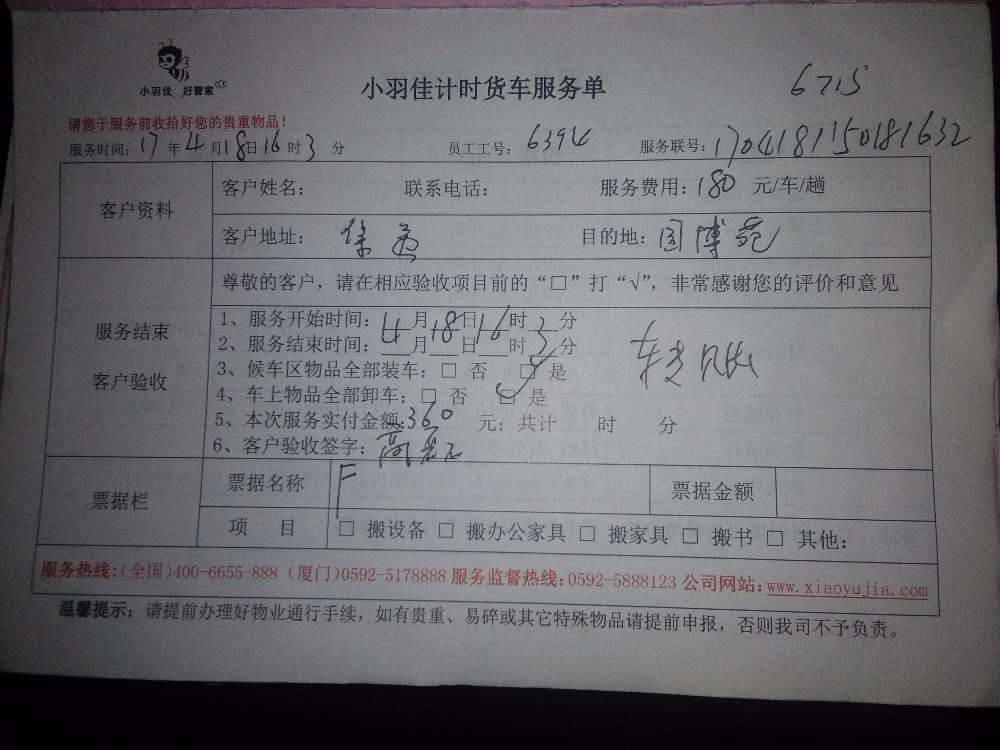 小羽佳 好管家
小羽佳计时货车服务单
6715
请您于服务前收拾好您的贵重物品！
服务时间：17年4月18日16时3分 员工工号：6394 服务联号：1704181150181632
客户资料
客户姓名： 联系电话： 服务费用：180 元/车/趟
客户地址：徐 目的地：国博苑
服务结束
客户验收
尊敬的客户，请在相应验收项目前的“□”打“√”，非常感谢您的评价和意见
1、服务开始时间：4月18日16时3分
2、服务结束时间：__月__日__时3分
3、候车区物品全部装车：□ 否 □ 是
4、车上物品全部卸车：□ 否 □ 是
5、本次服务实付金额：360 元；共计 时 分
6、客户验收签字：高
票据栏
票据名称 F 票据金额
项 目 □ 搬设备 □ 搬办公家具 □ 搬家具 □ 搬书 □ 其他：
服务热线：（全国）400-6655-888（厦门）0592-5178888 服务监督热线：0592-5888123 公司网站：www.xiaoyujia.com
温馨提示：请提前办理好物业通行手续，如有贵重、易碎或其它特殊物品请提前申报，否则我司不予负责。